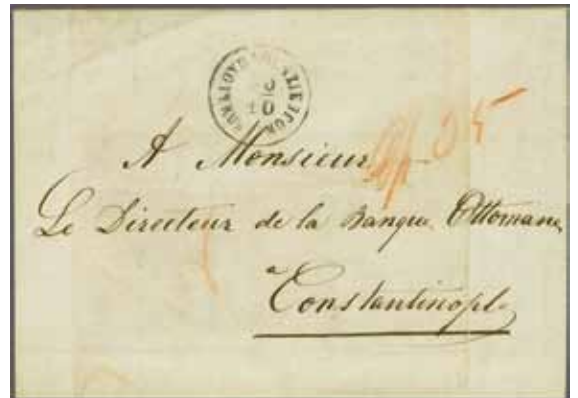 A Monsieur
Le Directeur de la Banque Ottomane
a
Constantinople